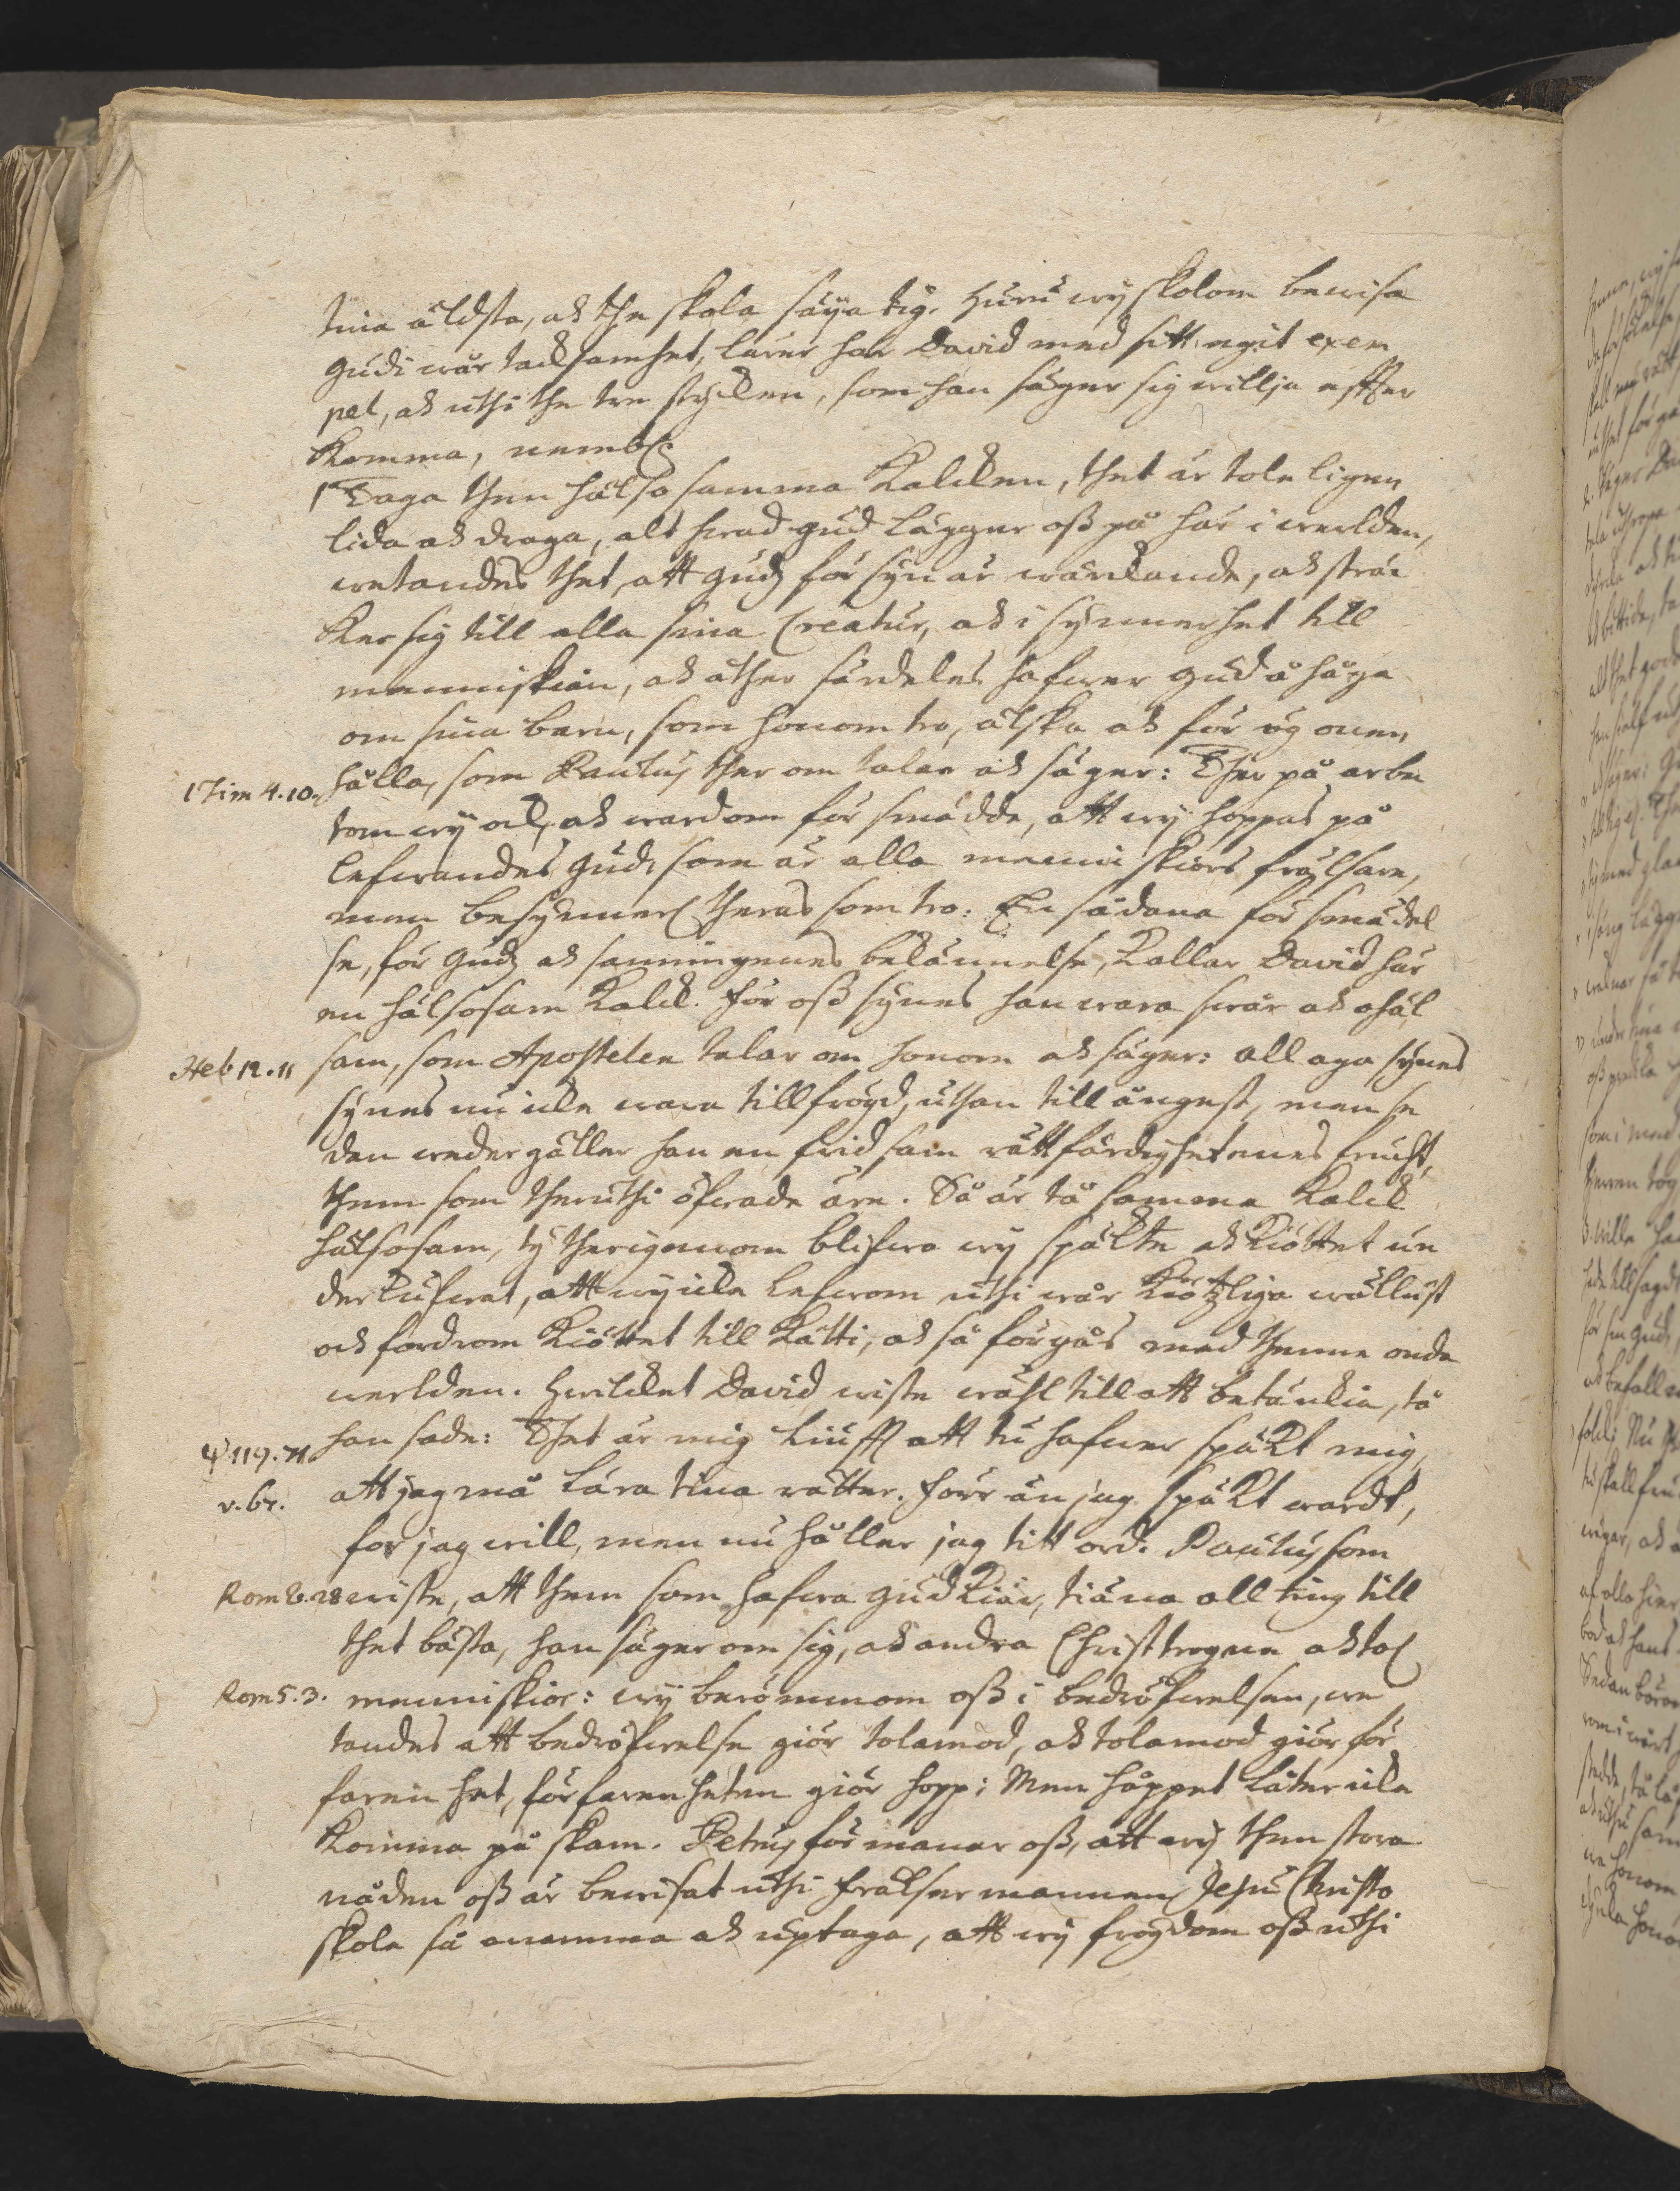 tina äldsta, och the skola säya tig. Huru wij skolom bewisa
Gudi wår tacksamhet, lärer här David med sitt egit exem
pel, och uthi the tre stycken, som han säger sig willja effter
komma, nembl.
1 Taga then hälsosamma Kalcken, thet är toleligen
lida och draga, alt hwad Gud lägger oss på här i werlden,
wetandes thet, att Gudz försyn är warckande, och sträc
ker sig till alla sina Creatur, och i synnerhet till
menniskian, och åther särdeles hafwer Gud åhåga
om sina barn, som honom tro, älska och för ögonen
1 Tim 4.10. hålla, som Paulus ther om talar och säger: Ther på arbe
tom wij ock, och wardom försmädde, att wij hoppas på
lefwandes Gud, som är alla menniskiors frälsare,
men besynnerl theras som tro. En sådana försmädel
se, för Gudz och sanningenes bekännelse, Kallar David här
en hälsosam Kalck. För oss synes han wara swår och ohäl
Heb 12.11 sam, som Apostelen talar om honom och säger: all aga synes
synes nu icke wara till frögd, uthan till ångest, men se
dan wedergäller han en fridsam rättfärdighetenes frucht,
them som theruthi öfwade äre. Så är tå samma Kalck
hälsosam, ty therigenom blifwa wij späkte och Kiöttet un
derkufwat, att wij icke lefwom uthi wår Kiötzliga wällust
och fordrom Kiöttet till Kätti, och så förgås med thenne onda
werlden. Hwilcket David wiste wähl till att betänckia, tå
ψ 119.71. han sade: Thet är mig liufft att tu hafwer späkt mig,
v. 67. att jag må lära tina rätter. Förr än jag späkt wardt,
for jag will, men nu håller jag titt ord. Paulus som
Rom 8.28 wiste, att them som hafwa Gud Kiär, tiäna all ting till
thet bästa, han säger om sig, och andra Christtrogne och tol
Rom 5.3. menniskior: wij berömmom oss i bedröfwelsen, we
tandes att bedröfwelse giör tolamod, och tolamod giör för
farenhet, förfarenheten giör hopp; Men hoppet låter icke
komma på skam. Petrus förmanar oss, att wij then stora
nåden oss är bewisat uthi frälsermannen Jesu Christo
skole så anamma och uptaga, att wij frögdom oss uthi